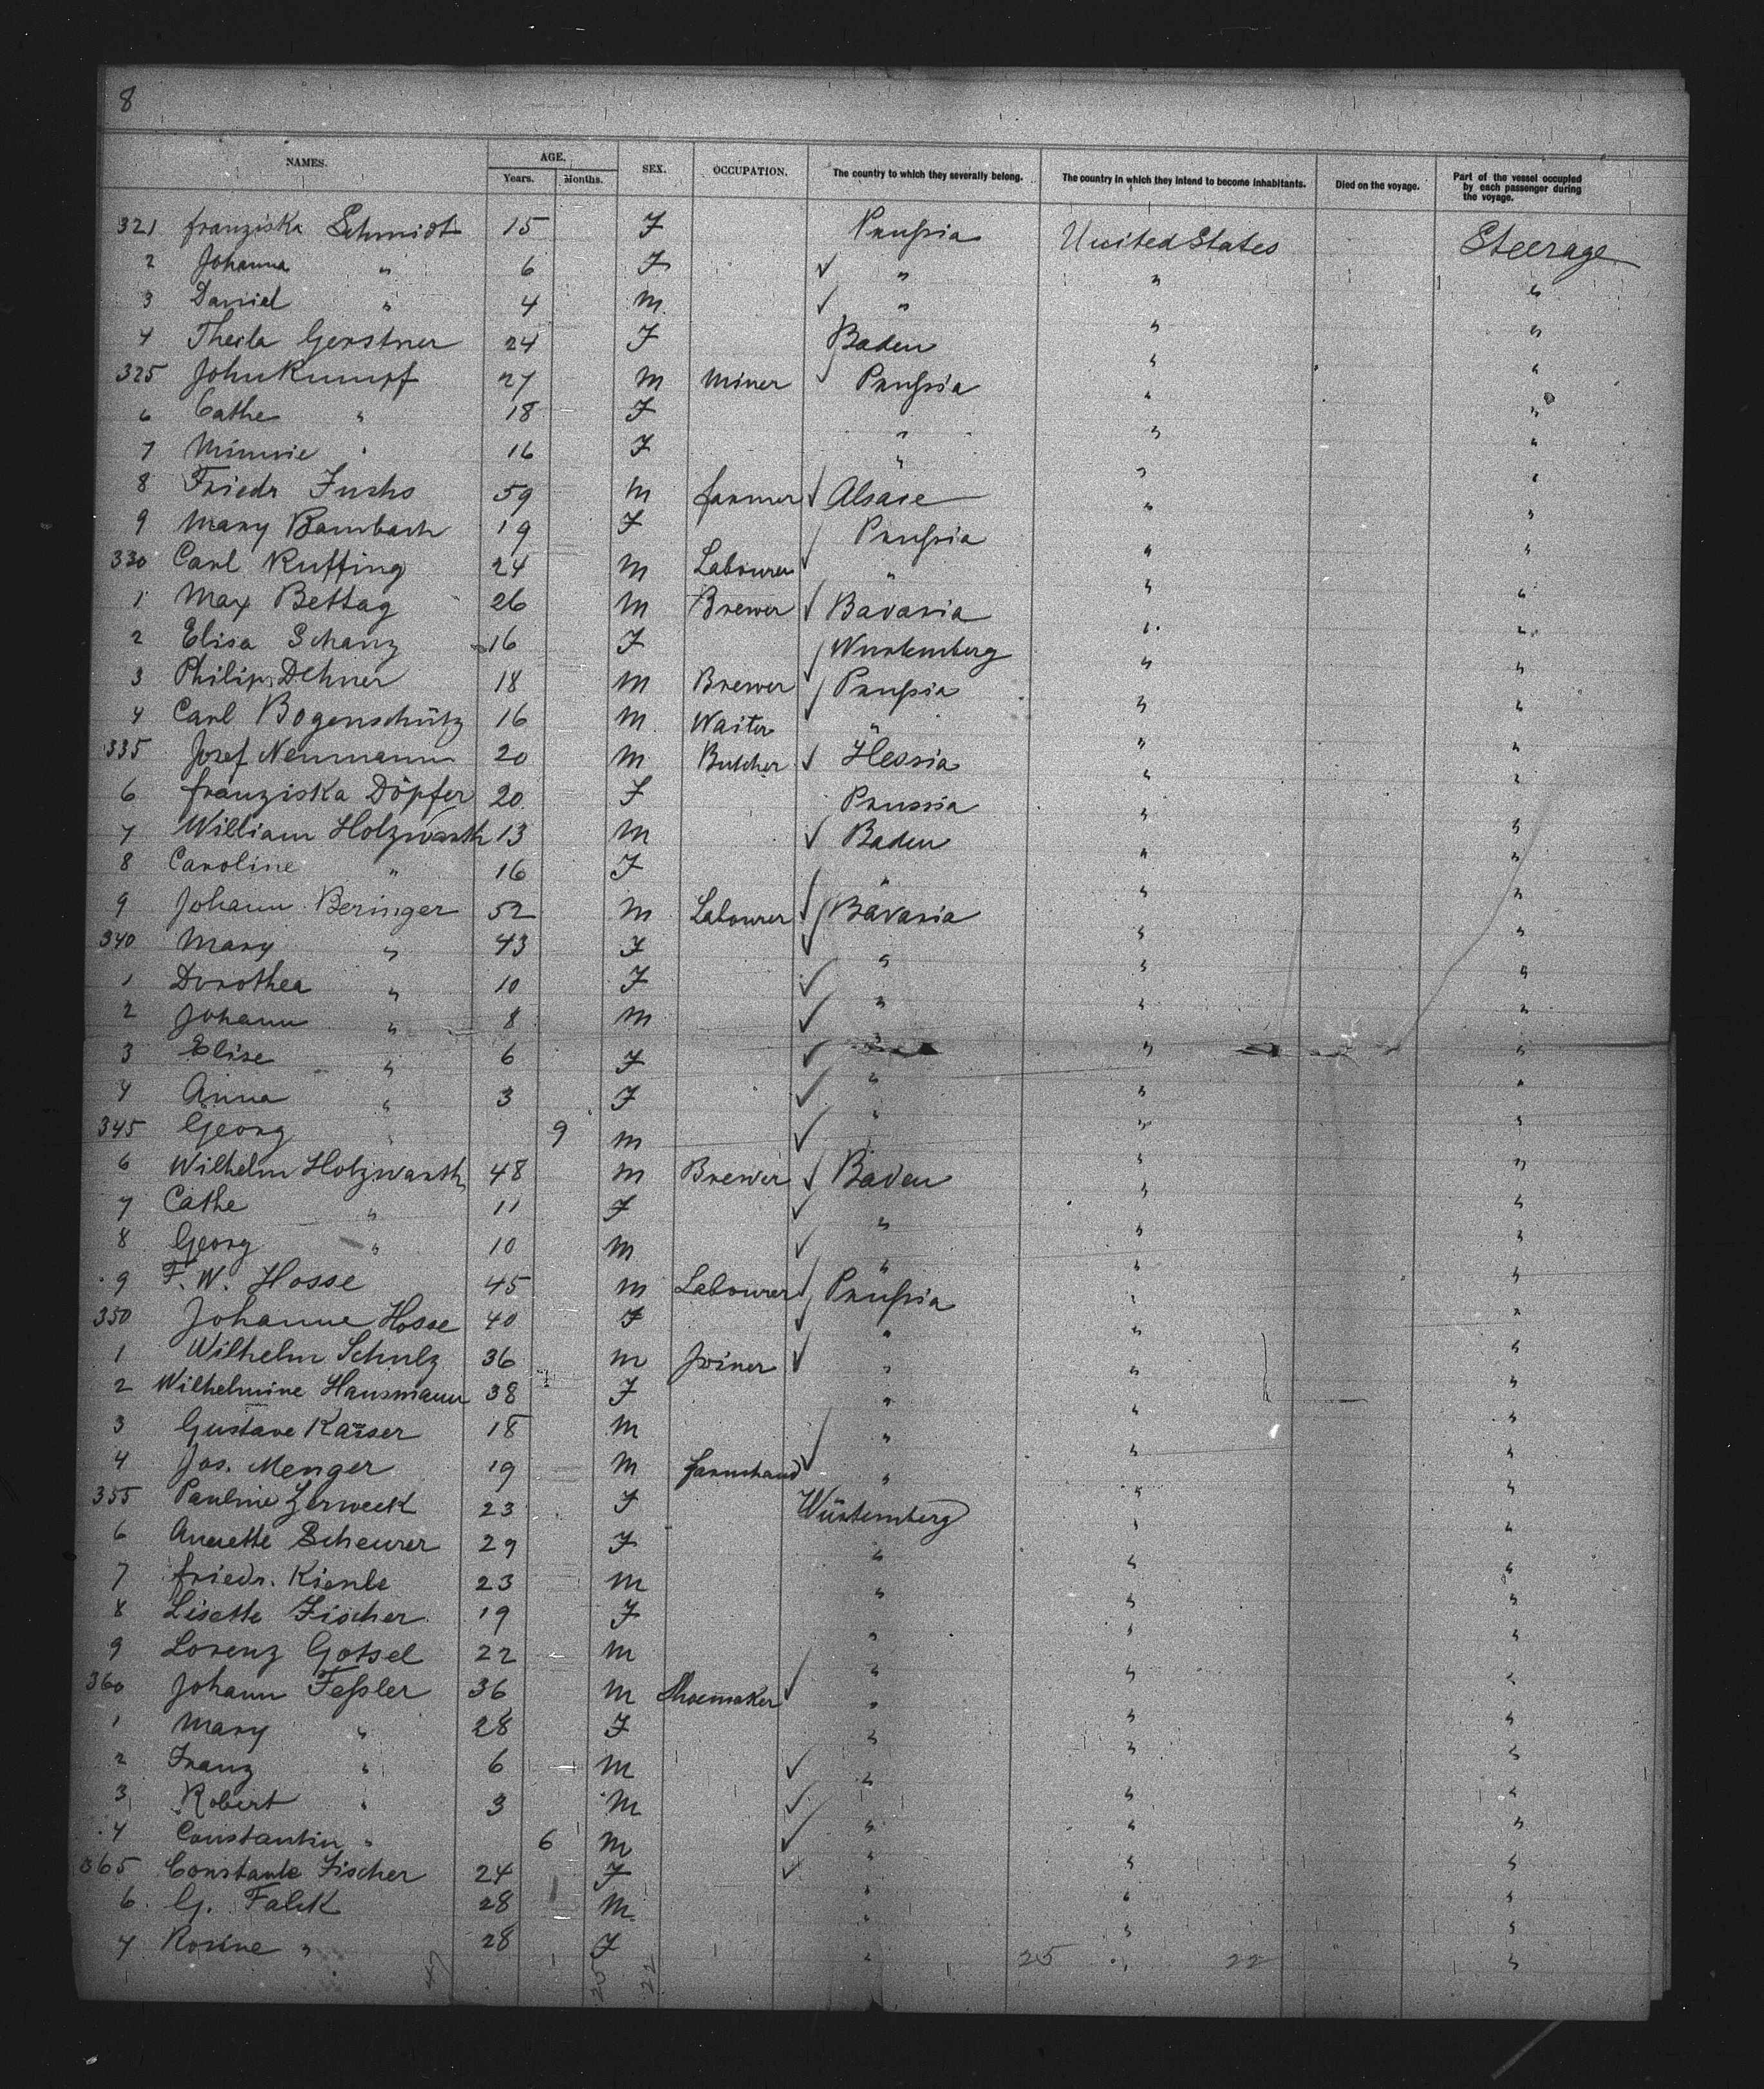 8
NAMES. AGE. SEX. OCCUPATION. The country to which they severally belong. The country in which they intend to become inhabitants. Died on the voyage. Part of the vessel occupied by each passenger during the voyage.
Years. Months.
321 Franziska Schmidt 15 F Prußia United States Steerage
2 Johanna " 6 F ✓ " " "
3 Daniel " 4 M ✓ " " "
4 Thecla Gerstner 24 F Baden " "
325 John Rumpf 27 M Miner ✓ Prußia " "
6 Cathe " 18 F " " "
7 Minnie " 16 F " " "
8 Friedr Fuchs 59 M farmer ✓ Alsace " "
9 Mary Bambach 19 F Prußia " "
330 Carl Ruffing 24 M Labourer ✓ " " "
1 Max Bettag 26 M Brewer ✓ Bavaria " "
2 Elisa Schanz 16 F Wurtemberg " "
3 Philip Dehner 18 M Brewer ✓ Prußia " "
4 Carl Bogenschütz 16 M Waiter ✓ " " "
335 Josef Neumann 20 M Butcher ✓ Hessia " "
6 Franziska Döpfer 20 F Prussia " "
7 William Holzwarth 13 M ✓ Baden " "
8 Caroline " 16 F " " "
9 Johann Beringer 52 M Labourer ✓ Bavaria " "
340 Mary " 43 F ✓ " " "
1 Dorothea " 10 F ✓ " " "
2 Johann " 8 M ✓ " " "
3 Elise " 6 F ✓ " " "
4 Anna " 3 F ✓ " " "
345 Georg " 9 M ✓ " " "
6 Wilhelm Holzwarth 48 M Brewer ✓ Baden " "
7 Cathe " 11 F ✓ " " "
8 Georg " 10 M ✓ " " "
9 F. W. Hosse 45 M Labourer ✓ Prußia " "
350 Johanne Hosse 40 F ✓ " " "
1 Wilhelm Schulz 36 M Joiner ✓ " " "
2 Wilhelmine Hausmann 38 F " " "
3 Gustave Kaiser 18 M " " "
4 Jos. Menger 19 M farmhand ✓ " " "
355 Pauline Zerweck 23 F Würtemberg " "
6 Annette Scheurer 29 F " " "
7 Friedr. Kienle 23 M " " "
8 Lisette Fischer 19 F " " "
9 Lorenz Gotsel 22 M " " "
360 Johann Feßler 36 M Shoemaker ✓ " " "
1 Mary " 28 F " " "
2 Franz " 6 M ✓ " " "
3 Robert " 3 M ✓ " " "
4 Constantin " 6 M ✓ " " "
365 Constante Fischer 24 F ✓ " " "
6 G. Falck 28 M " " "
7 Rosine " 28 F " " "
47 25 22 25 22